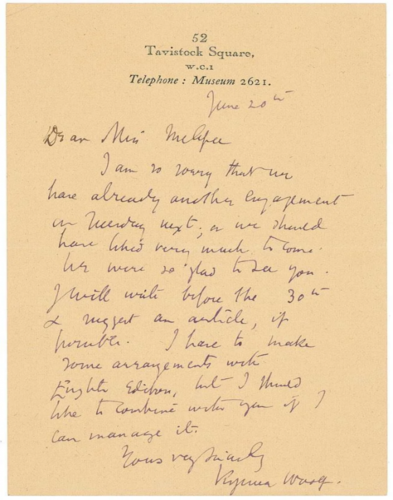 52
Tavistock Square,
W.C.1
Telephone : Museum 2621.
June 20th
Dear Miss McAfee
I am so sorry that we
have already another engagement
on Tuesday next, or we should
have liked very much to come.
We were so glad to see you.
I will write before the 30th
& suggest an article, if
possible. I have to make
some arrangements with
English Editors, but I should
like to combine with you if I
can manage it.
Yours very sincerely
Virginia Woolf